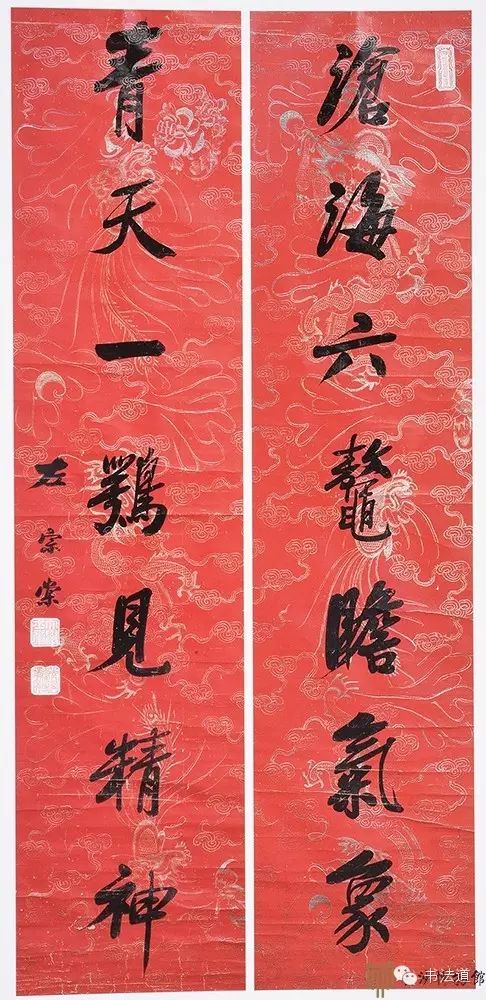 滄海六鼇瞻氣象
青天一鶚見精神
左宗棠
书法道馆